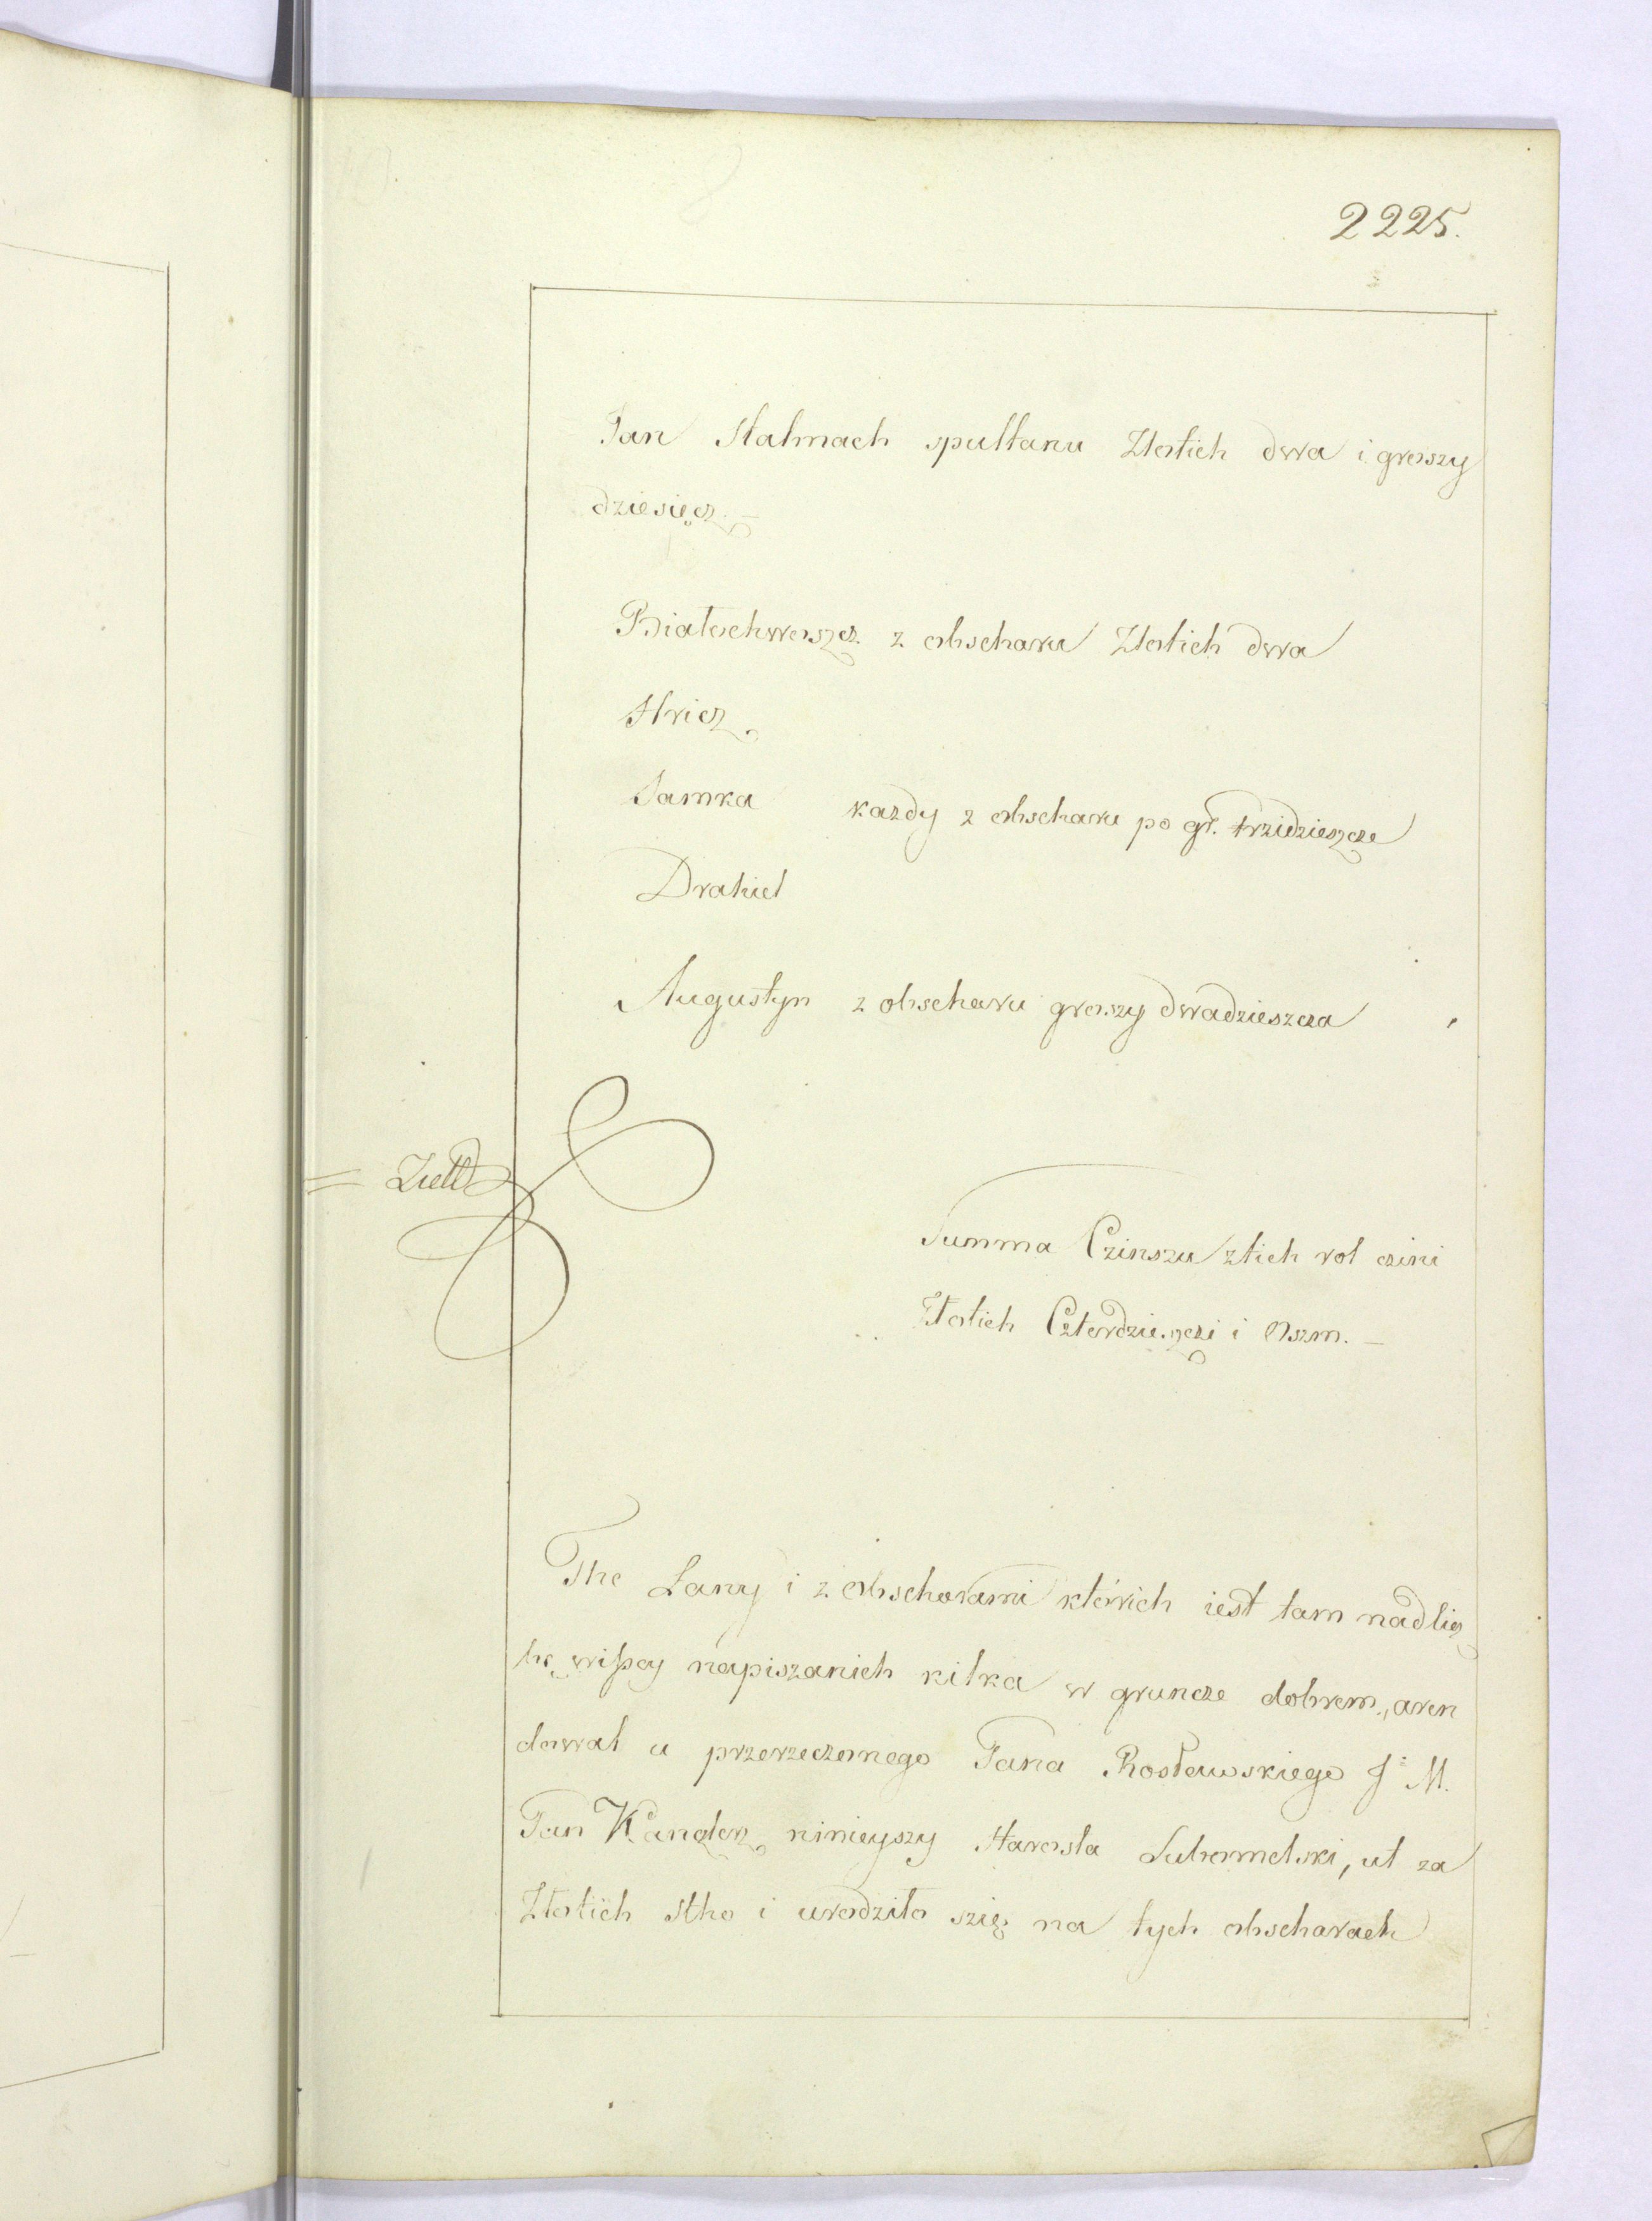 2225.
Jan Stalmach spułłanu Złotich dwa i groszy
dziesięcz. –
Białochwoszcz z obscharu Złotich dwa
Hricz
Samka każdy z obscharu po gr. trzidzieszcze
Drahiel
Augustyn z obscharu groszy dwadzieszcza
Summa Czinszu ztich rol czini
Złotich Czterdzieszczi i Oszm. –
The Lany i z obscharami których iest tam nadlicz
bę wiszey napiszanich kilka w gruncze dobrem, aren
dował u przerzeczonego Pana Rosławskiego J: M.
Pan Kanclerz ninieyszy Starosta Lubomelski, ut za
Złotich Stho i urodziło szię na tych obscharach